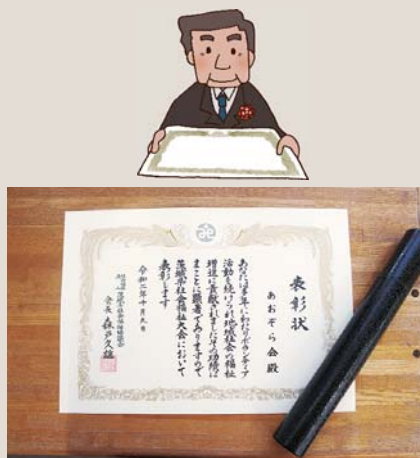 表彰状
あおぞら会 殿
あなたは多年にわたりボランティア
活動を続けられ地域社会の福祉
増進に貢献されましたその功績は
まことに顕著でありますので
茨城県社会福祉大会において
表彰します
令和二年十月九日
社会福祉法人 茨城県社会福祉協議会
会長 森戸久雄